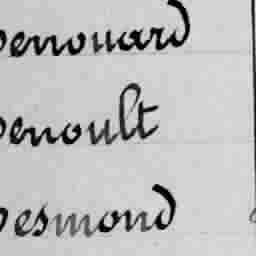 Denouard
Denoult
Desmond